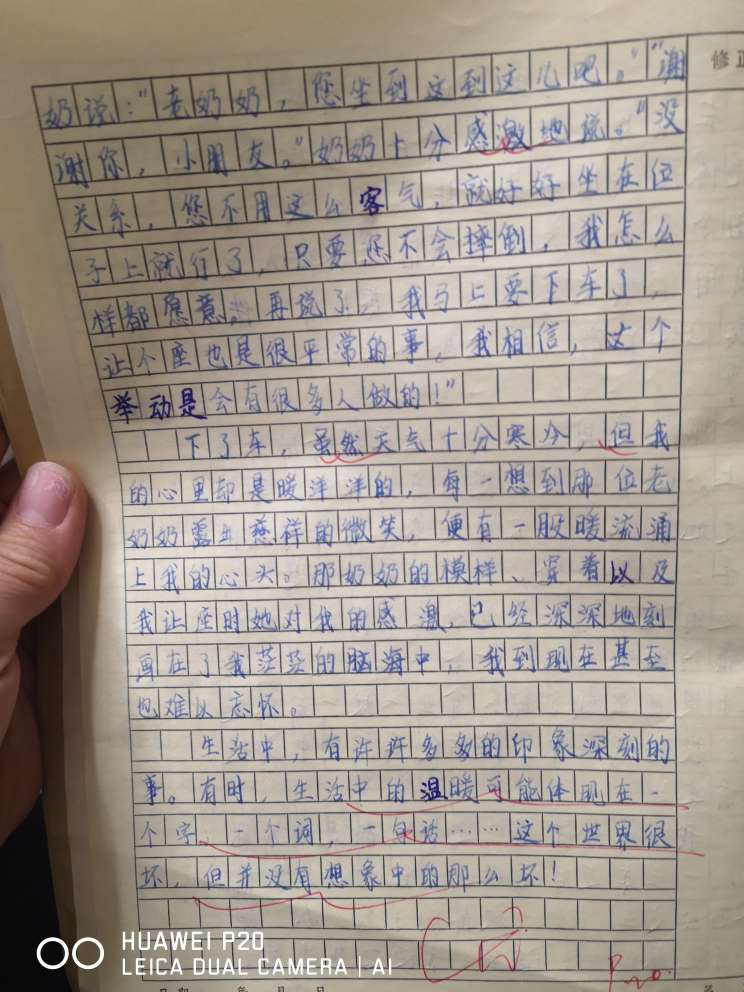 修正
奶说:"老奶奶,您坐到这到这儿吧。""谢
谢你,小朋友。"奶奶十分感激地说。"没
关系,您不用这么客气,就好好坐在位
子上就行了,只要您不会摔倒,我怎么
样都愿意。再说了,我马上要下车了,
让个座也是很平常的事,我相信,这个
举动是会有很多人做的!"
下了车,虽然天气十分寒冷,但我
的心里却是暖洋洋的,每一想到那位老
奶奶露出慈祥的微笑,便有一股暖流涌
上我的心头。那奶奶的模样、穿着以及
我让座时她对我的感激,已经深深地刻
画在了我茫茫的脑海中,我到现在甚至
也难以忘怀。
生活中,有许许多多的印象深刻的
事。有时,生活中的温暖可能体现在一
个字,一个词,一句话……这个世界很
坏,但并没有想象中的那么坏!
HUAWEI P20
LEICA DUAL CAMERA | AI